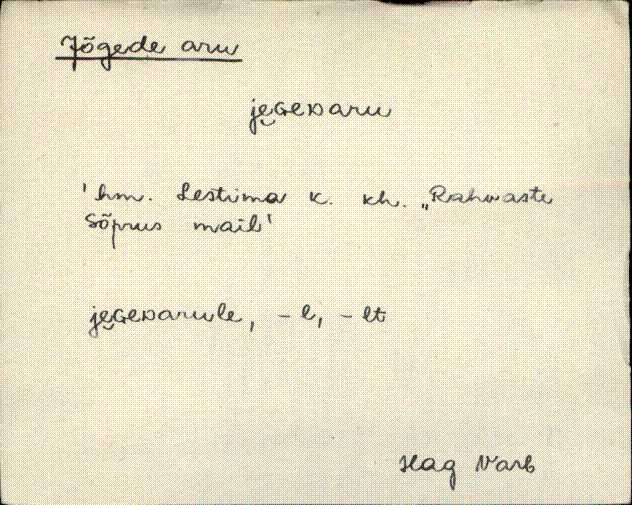 Jõgede aru
je̮ɢᴇᴅaru
'hm. Lestima k. kh. „Rahvaste
Sõprus mail'
je̮ɢᴇᴅarule, -l, -lt
Hag Varb